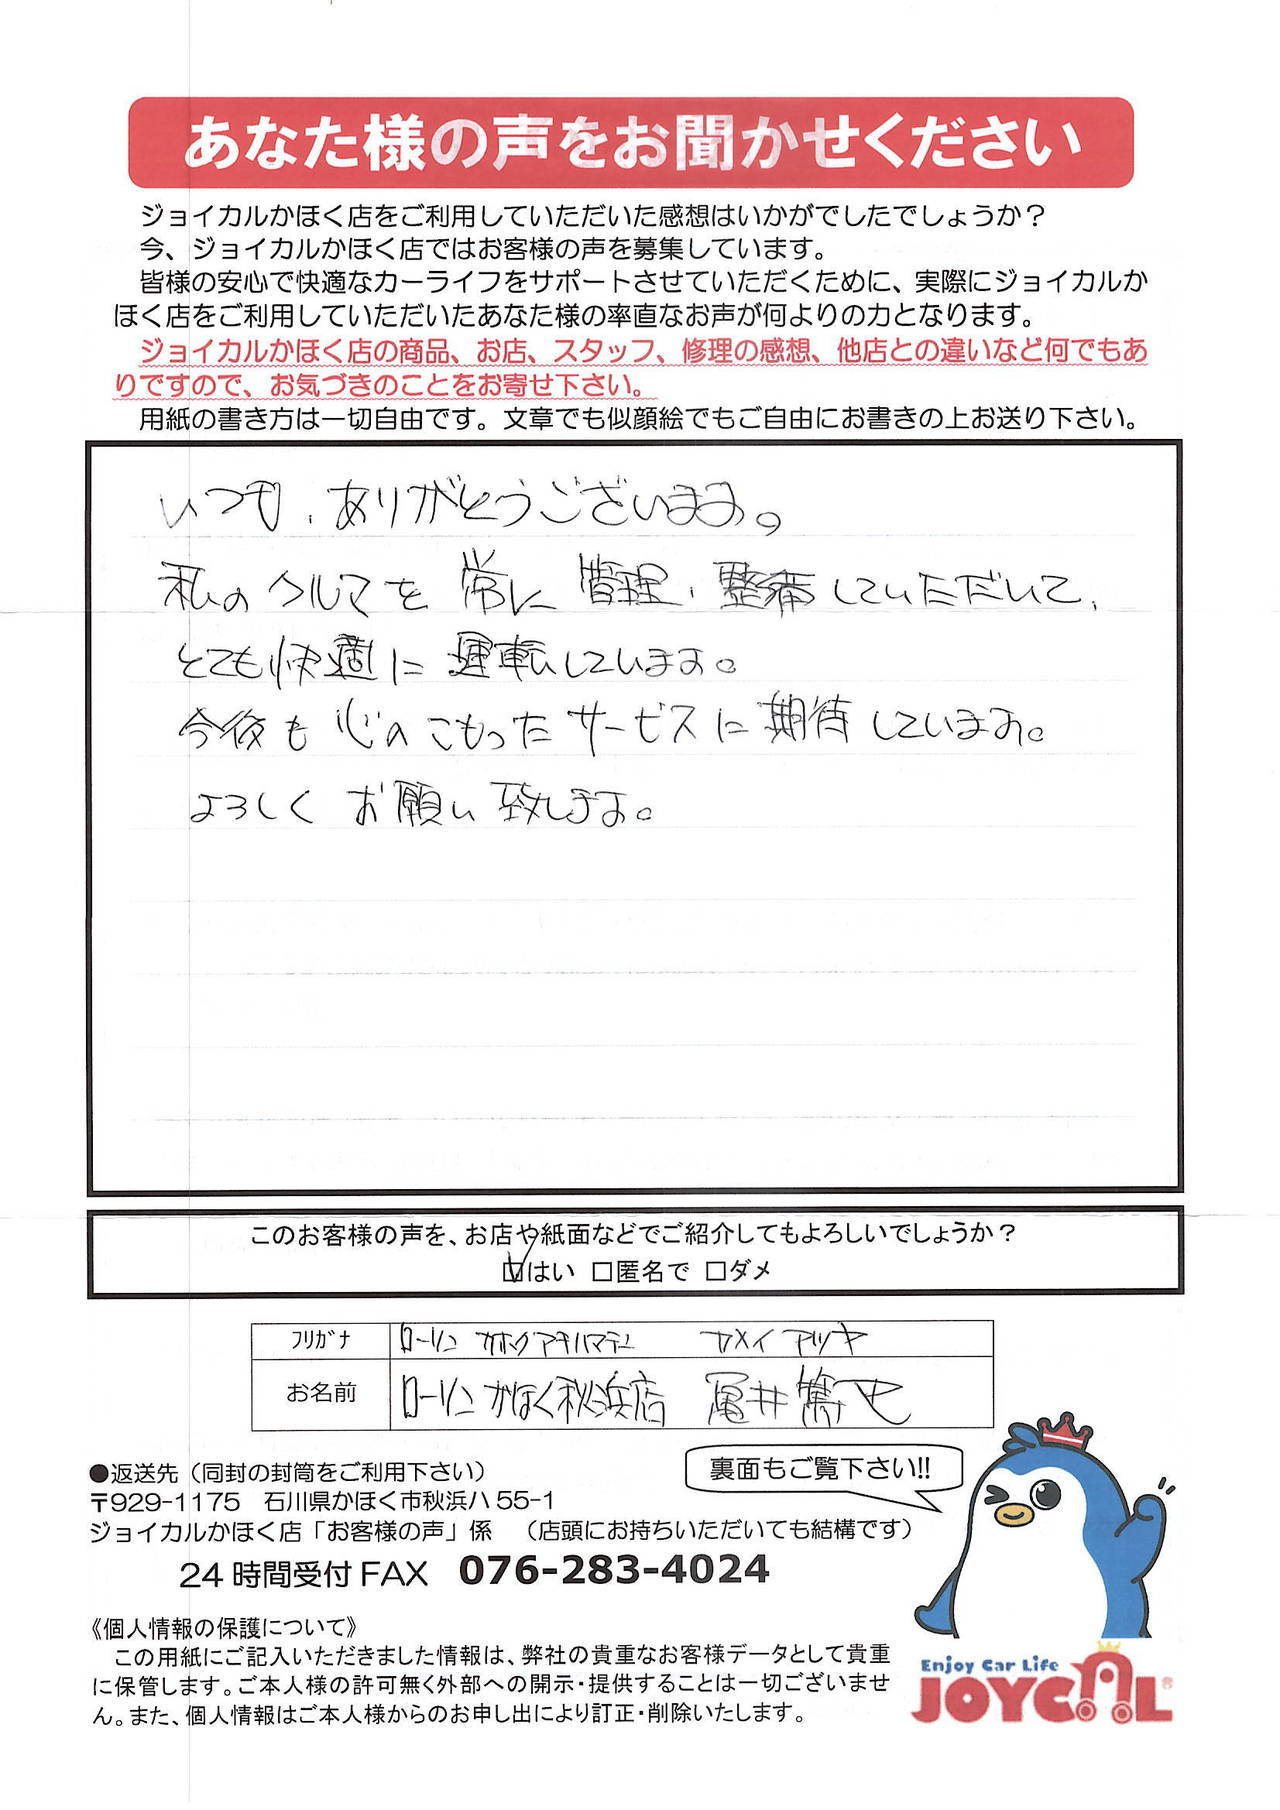 あなた様の声をお聞かせください
ジョイカルかほく店をご利用していただいた感想はいかがでしたでしょうか？
今、ジョイカルかほく店ではお客様の声を募集しています。
皆様の安心で快適なカーライフをサポートさせていただくために、実際にジョイカルか
ほく店をご利用していただいたあなた様の率直なお声が何よりの力となります。
ジョイカルかほく店の商品、お店、スタッフ、修理の感想、他店との違いなど何でもあ
りですので、お気づきのことをお寄せ下さい。
用紙の書き方は一切自由です。文章でも似顔絵でもご自由にお書きの上お送り下さい。
いつも、ありがとうございます。
私のクルマを常に管理、整備していただいて、
とても快適に運転しています。
今後も心のこもったサービスに期待しています。
よろしくお願い致します。
このお客様の声を、お店や紙面などでご紹介してもよろしいでしょうか？
☑はい □匿名で □ダメ
フリガナ ローソン カホクアキハマテン カメイ アツヤ
お名前 ローソンかほく秋浜店 亀井篤也
裏面もご覧下さい!!
●返送先（同封の封筒をご利用下さい）
〒929-1175 石川県かほく市秋浜ハ55-1
ジョイカルかほく店「お客様の声」係 （店頭にお持ちいただいても結構です）
24時間受付FAX 076-283-4024
《個人情報の保護について》
この用紙にご記入いただきました情報は、弊社の貴重なお客様データとして貴重
に保管します。ご本人様の許可無く外部への開示・提供することは一切ございませ
ん。また、個人情報はご本人様からのお申し出により訂正・削除いたします。
Enjoy Car Life
JOYCAL®